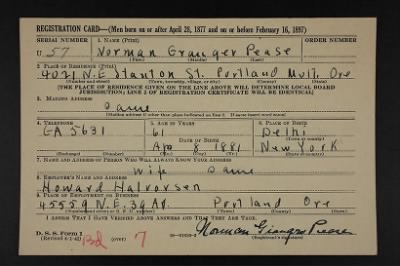 REGISTRATION CARD—(Men born on or after April 28, 1877 and on or before February 16, 1897)
SERIAL NUMBER 1. NAME (Print) ORDER NUMBER
U 57 Norman Granger Pease
(First) (Middle) (Last)
2. PLACE OF RESIDENCE (Print)
4021 N.E Stanton St. Portland Mult. Ore
(Number and street) (Town, township, village, or city) (County) (State)
[THE PLACE OF RESIDENCE GIVEN ON THE LINE ABOVE WILL DETERMINE LOCAL BOARD
JURISDICTION; LINE 2 OF REGISTRATION CERTIFICATE WILL BE IDENTICAL]
3. MAILING ADDRESS
Same
[Mailing address if other than place indicated on line 2. If same insert word same]
4. TELEPHONE 5. AGE IN YEARS 6. PLACE OF BIRTH
GA 5631 61 Delhi
DATE OF BIRTH (Town or county)
Apr 8 1881 New York
(Mo.) (Day) (Yr.) (State or country)
7. NAME AND ADDRESS OF PERSON WHO WILL ALWAYS KNOW YOUR ADDRESS
Wife Same
8. EMPLOYER'S NAME AND ADDRESS
Howard Halvorsen
9. PLACE OF EMPLOYMENT OR BUSINESS
45559 N.E. 39 Av. Portland Ore
(Number and street or R. F. D. number) (Town) (County) (State)
I AFFIRM THAT I HAVE VERIFIED ABOVE ANSWERS AND THAT THEY ARE TRUE.
D. S. S. Form 1
(Revised 4-1-42) (over) 7
Norman Granger Pease
(Registrant's signature)